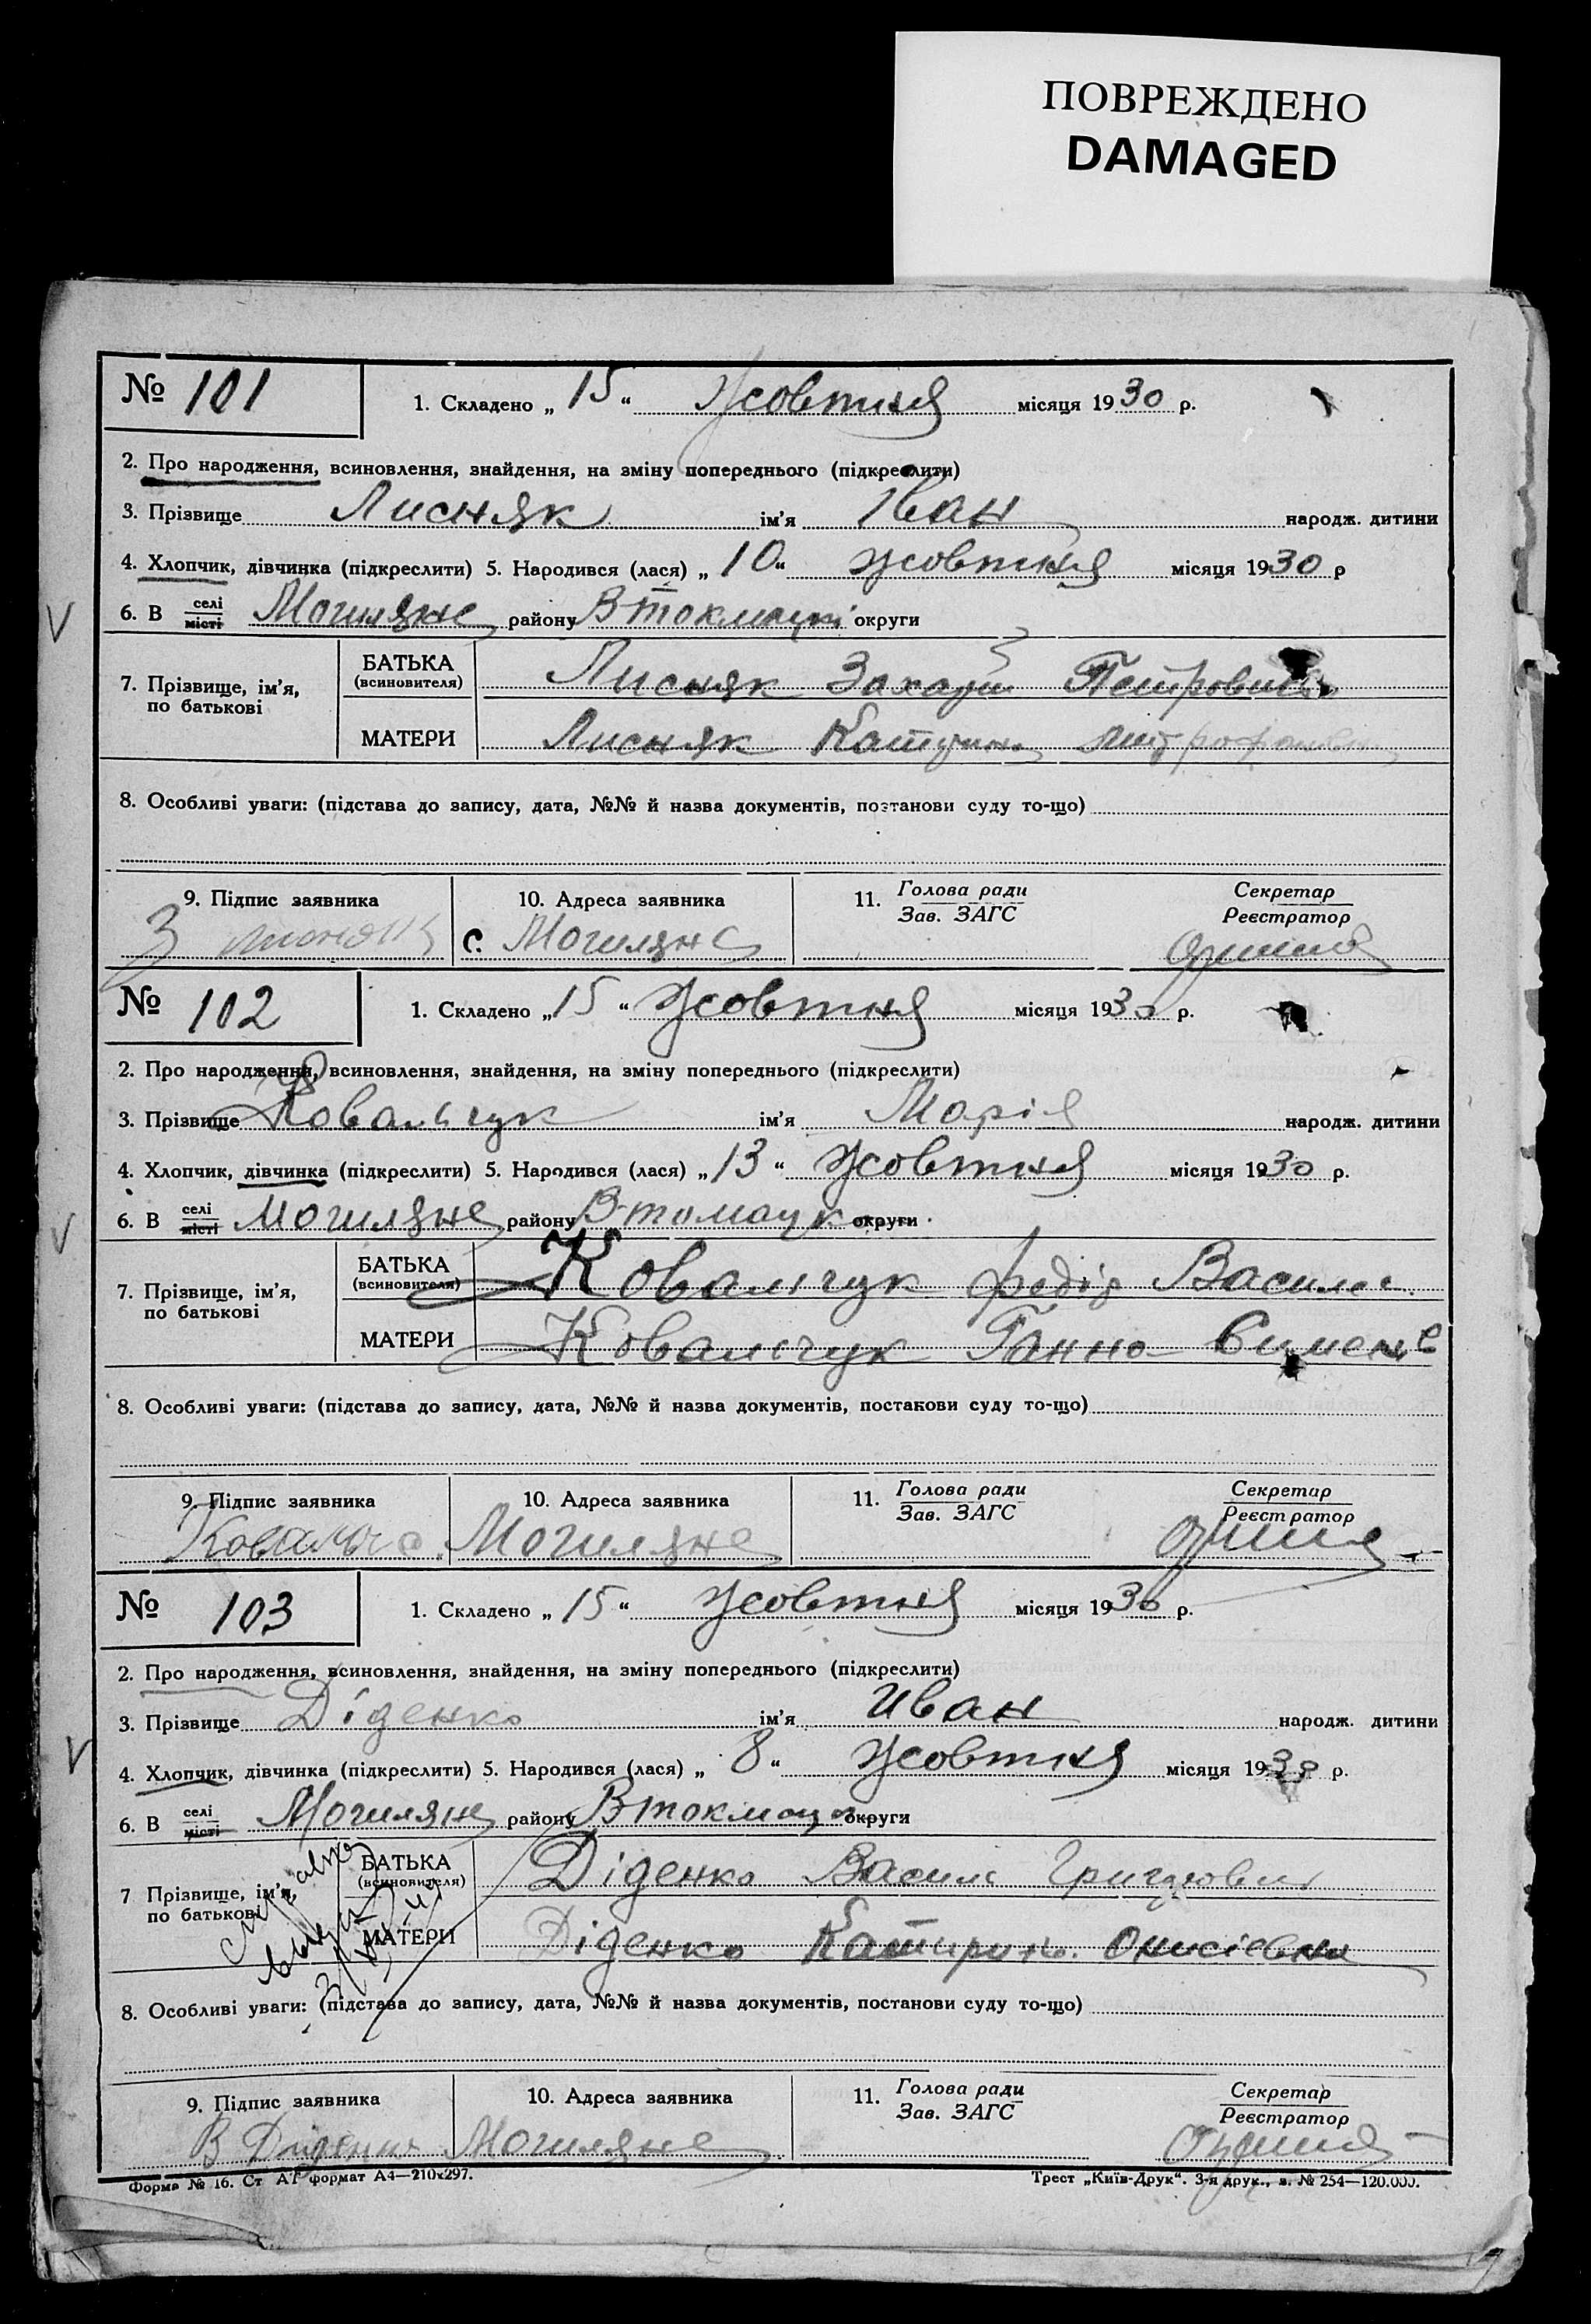 ПОВРЕЖДЕНО
DAMAGED
№ 101
1. Складено „ 15 “ Жовтня місяця 1930 р.
2. Про народження, всиновлення, знайдення, на зміну попереднього (підкреслити)
3. Прізвище Лисняк ім'я Іван народж. дитини
4. Хлопчик, дівчинка (підкреслити) 5. Народився (лася) „ 10 “ жовтня місяця 1930 р
6. В селі місті Могиляне району Втокмацкі округи
7. Прізвище, ім'я, по батькові
БАТЬКА (всиновителя) Лисняк Захарій Петрович
МАТЕРИ Лисняк Катерина Митрофанівн
8. Особливі уваги: (підстава до запису, дата, №№ й назва документів, постанови суду то-що)
9. Підпис заявника 10. Адреса заявника 11. Голова ради Зав. ЗАГС Секретар Реєстратор
З Лисняк с. Могиляне
№ 102
1. Складено „ 15 “ Жовтня місяця 1930 р.
2. Про народження, всиновлення, знайдення, на зміну попереднього (підкреслити)
3. Прізвище Ковальчук ім'я Марія народж. дитини
4. Хлопчик, дівчинка (підкреслити) 5. Народився (лася) „ 13 “ Жовтня місяця 1930 р.
6. В селі місті Могиляне району округи
7. Прізвище, ім'я, по батькові
БАТЬКА (всиновителя) Ковальчук Федір Василь
МАТЕРИ Ковальчук Ганна Симене
8. Особливі уваги: (підстава до запису, дата, №№ й назва документів, постанови суду то-що)
9. Підпис заявника 10. Адреса заявника 11. Голова ради Зав. ЗАГС Секретар Реєстратор
Могиляне
№ 103
1. Складено „ 15 “ Жовтня місяця 1930 р.
2. Про народження, всиновлення, знайдення, на зміну попереднього (підкреслити)
3. Прізвище Діденко ім'я Иван народж. дитини
4. Хлопчик, дівчинка (підкреслити) 5. Народився (лася) „ 8 “ Жовтня місяця 1930 р.
6. В селі місті Могиляне району округи
7 Прізвище, ім'я, по батькові
БАТЬКА (всиновителя) Діденко Василь Григорович
МАТЕРИ Діденко Катирина Онисіевна
8. Особливі уваги: (підстава до запису, дата, №№ й назва документів, постанови суду то-що)
9. Підпис заявника 10. Адреса заявника 11. Голова ради Зав. ЗАГС Секретар Реєстратор
В Діденко Могиляне
Форма № 16. Ст АГ формат А4—210х297. Трест „Київ-Друк“. 3-я друк., з. № 254—120.000.